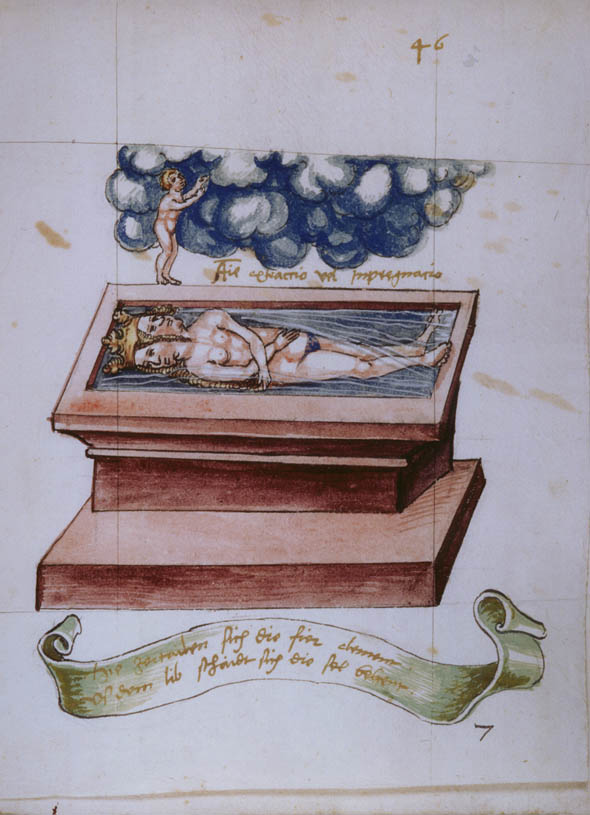 46
Aīe extraccio vel Inpregnacio
Hie zertailen sich die fier element
vs dem lib schaidt sich die sel behent
7